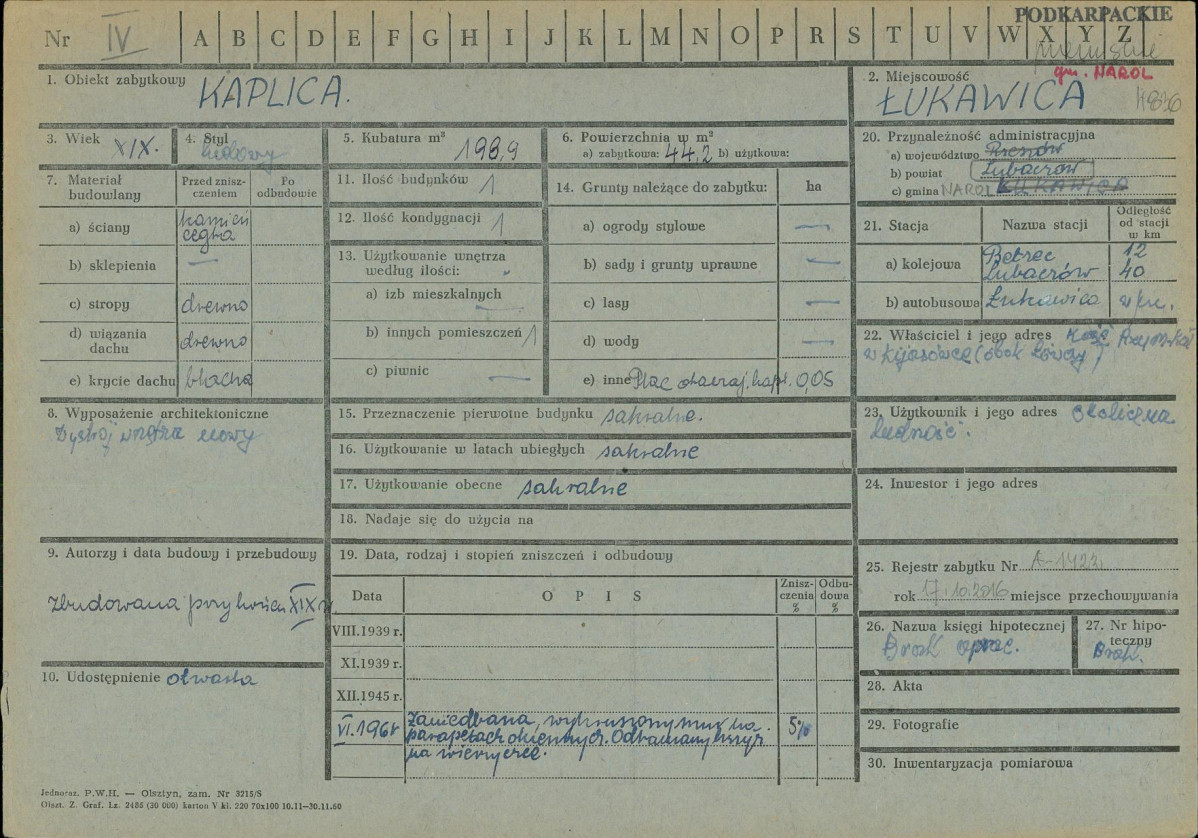 PODKARPACKIE
Nr IV A B C D E F G H I J K L M N O P R S T U V W X Y Z
gm. NAROL
1. Obiekt zabytkowy KAPLICA.
2. Miejscowość
ŁUKAWICA
3. Wiek XIX.
4. Styl ludowy
5. Kubatura m³ 198,9
6. Powierzchnia w m²
a) zabytkowa: 44,2 b) użytkowa:
7. Materiał budowlany
Przed zniszczeniem
Po odbudowie
a) ściany kamień cegła
b) sklepienia —
c) stropy drewno
d) wiązania dachu drewno
e) krycie dachu blacha
8. Wyposażenie architektoniczne
Wystrój wnętrza nowy
9. Autorzy i data budowy i przebudowy
Zbudowana przy końcu XIX w.
10. Udostępnienie otwarta
11. Ilość budynków 1
12. Ilość kondygnacji 1
13. Użytkowanie wnętrza
według ilości:
a) izb mieszkalnych —
b) innych pomieszczeń 1
c) piwnic —
14. Grunty należące do zabytku: ha
a) ogrody stylowe —
b) sady i grunty uprawne —
c) lasy —
d) wody —
e) inne Plac otaczaj. kapl. 0,05
15. Przeznaczenie pierwotne budynku sakralne.
16. Użytkowanie w latach ubiegłych sakralne
17. Użytkowanie obecne sakralne
18. Nadaje się do użycia na
19. Data, rodzaj i stopień zniszczeń i odbudowy
Data
OPIS
Zniszczenia %
Odbudowa %
VIII.1939 r.
XI.1939 r.
XII.1945 r.
VI.196 Zaniedbana, wykruszony mur na 5%
parapetach okiennych. Odłamany krzyż
na wieżyczce.
20. Przynależność administracyjna
a) województwo Rzeszów
b) powiat Lubaczów
c) gmina NAROL ŁUKAWICA
21. Stacja
Nazwa stacji
Odległość od stacji w km
a) kolejowa Bełzec 12
Lubaczów 40
b) autobusowa Łukawica
22. Właściciel i jego adres
23. Użytkownik i jego adres okoliczna
ludność.
24. Inwestor i jego adres
25. Rejestr zabytku Nr A-1423
rok 17.10.2016 miejsce przechowywania
26. Nazwa księgi hipotecznej
Brak oprac.
27. Nr hipoteczny
Brak.
28. Akta
29. Fotografie
30. Inwentaryzacja pomiarowa
Jednoraz. P.W.H. — Olsztyn, zam. Nr 3215/S
Olszt. Z. Graf. Lz. 2488 (30 000) karton V kl. 220 70x100 10.11—30.11.60